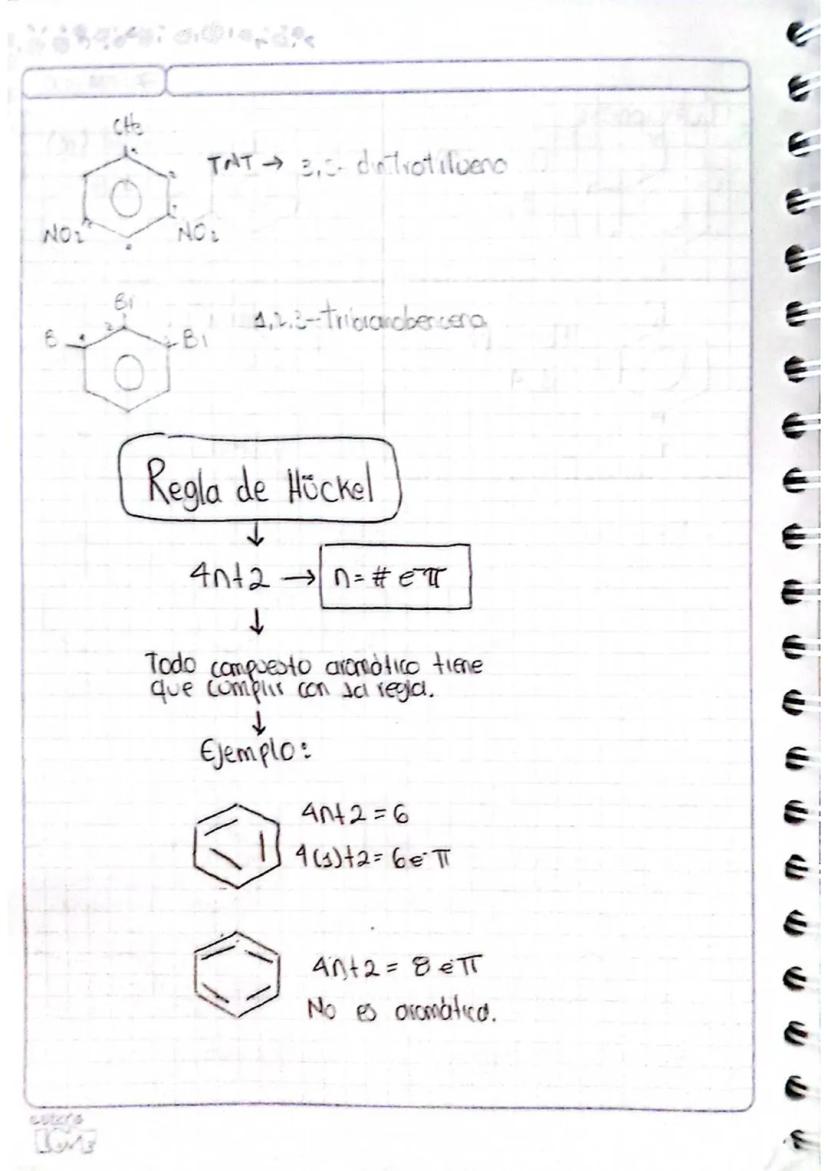 CH3
TNT → 3,5- dinitrotilueno
NO2
NO2
Br
B
2
Br
1,2,3-tribromobenceno
Regla de Hückel
↓
4n+2 → n= # e⁻π
↓
Todo compuesto aromático tiene
que cumplir con la regla.
↓
Ejemplo:
4n+2 = 6
4(1)+2= 6e⁻π
4n+2 = 8 e⁻π
No es aromático.